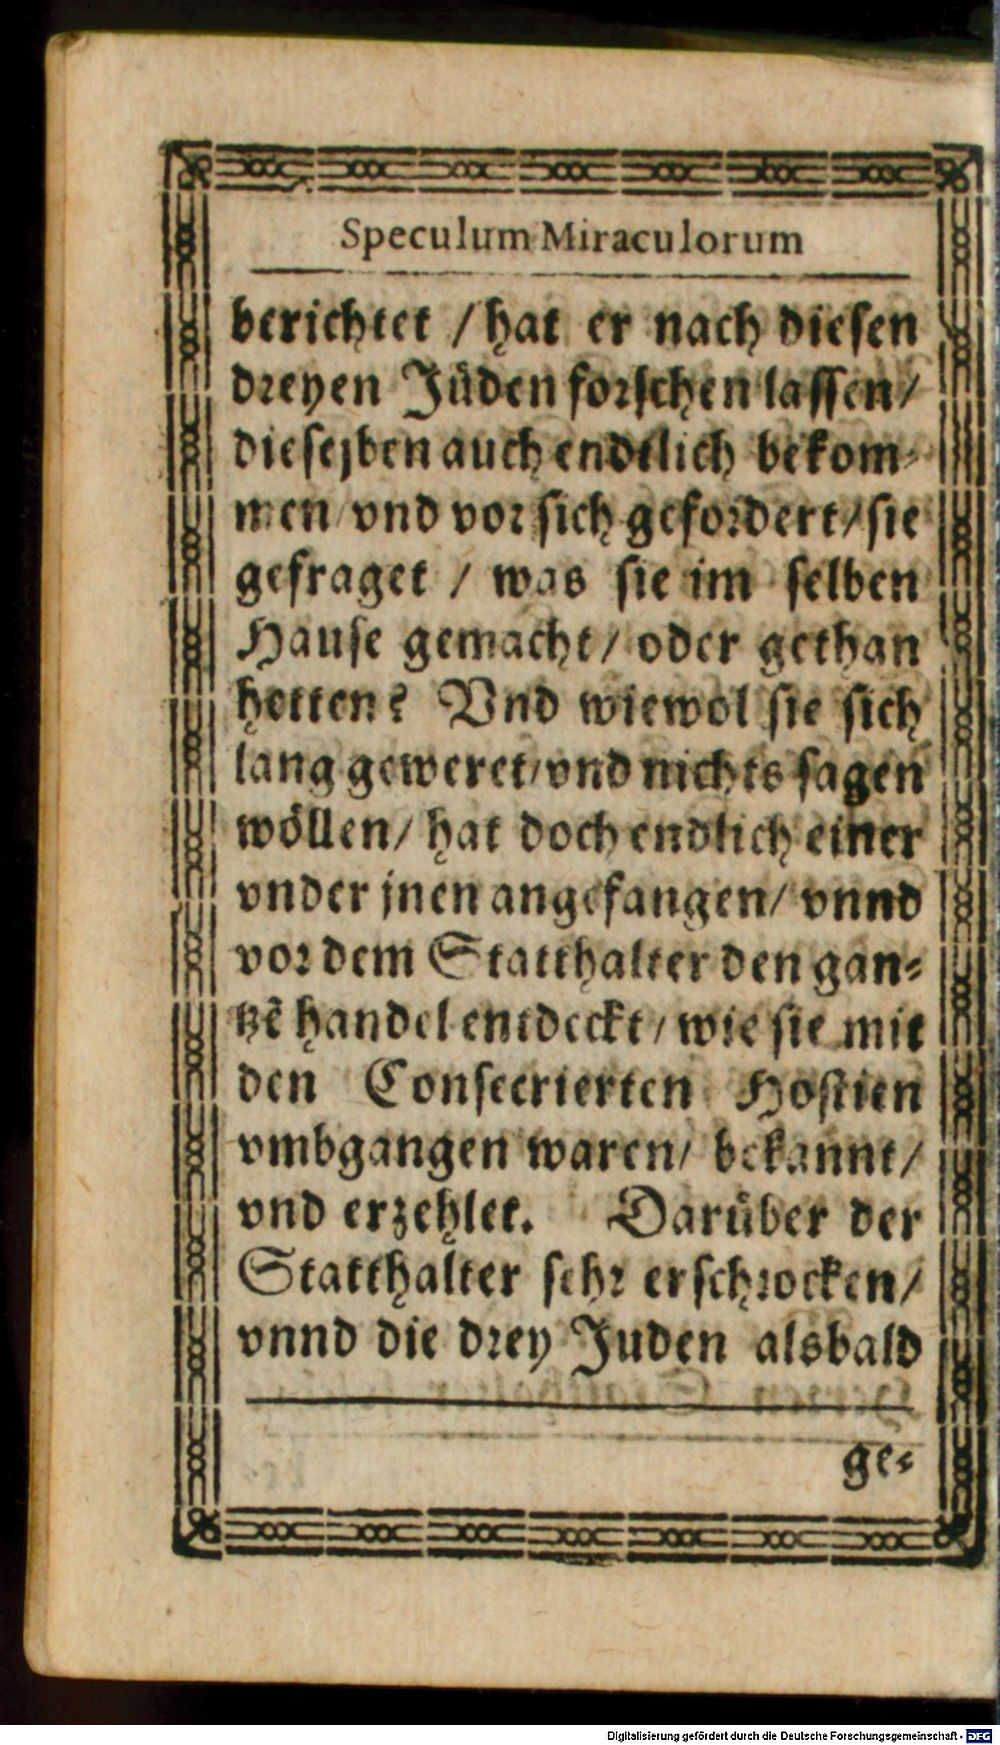 Speculum Miraculorum
berichtet / hat er nach diesen
dreyen Jüden forschen lassen/
dieselben auch endtlich bekom-
men/ vnd vor sich gefordert/ sie
gefraget / was sie im selben
Hause gemacht/ oder gethan
hetten? Vnd wiewol sie sich
lang geweret/ vnd nichts sagen
wöllen/ hat doch endlich einer
vnder jnen angefangen/ vnnd
vor dem Statthalter den gan-
tzē handel entdeckt/ wie sie mit
den Consecrierten Hostien
vmbgangen waren/ bekannt/
vnd erzehlet. Darüber der
Statthalter sehr erschrocken/
vnnd die drey Juden alsbald
ge-
Digitalisierung gefördert durch die Deutsche Forschungsgemeinschaft - DFG